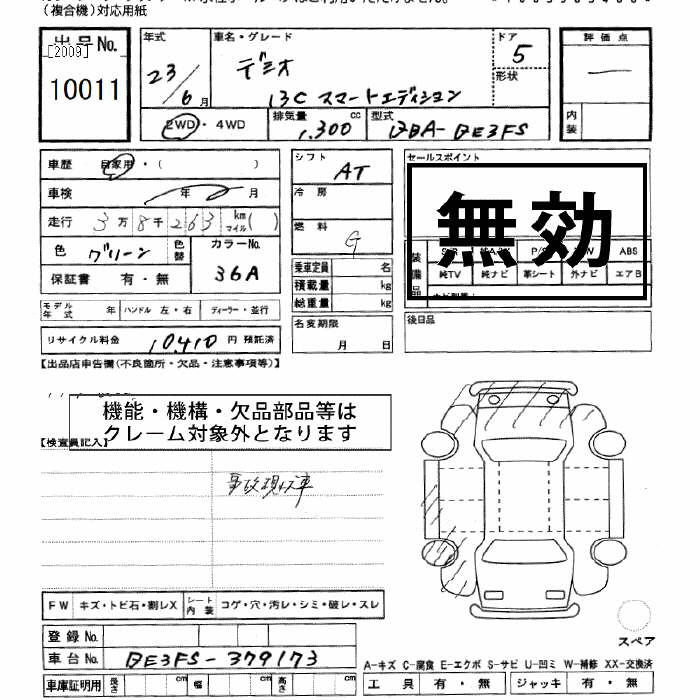 （複合機）対応用紙
出品No.
[2009]
10011
年式
23/6月
車名・グレード
デミオ
13C スマートエディション
ドア
5
形状
評価点
一
内装
2WD・4WD
排気量 1,300 cc
型式 DBA-DE3FS
車歴 自家用・( )
車検 年 月
走行 3万8千263 km マイル( )
色 グリーン
色替
カラーNo.
36A
保証書 有・無
モデル年式 年 ハンドル 左・右 ディーラー・並行
リサイクル料金 10,410 円 預託済
シフト AT
冷房
燃料 G
乗車定員 名
積載量 kg
総重量 kg
名変期限
月 日
セールスポイント
無効
ABS
純TV 純ナビ 革シート 外ナビ エアB
後日品
【出品店申告欄(不良箇所・欠品・注意事項等)】
機能・機構・欠品部品等は
クレーム対象外となります
【検査員記入】
事故現状車
FW キズ・トビ石・割レX シート内装 コゲ・穴・汚レ・シミ・破レ・スレ
登録No.
車台No. DE3FS-379173
車庫証明用 長さ cm 幅 cm 高さ cm
スペア
A-キズ C-腐食 E-エクボ S-サビ U-凹ミ W-補修 XX-交換済
工具 有・無 ジャッキ 有・無